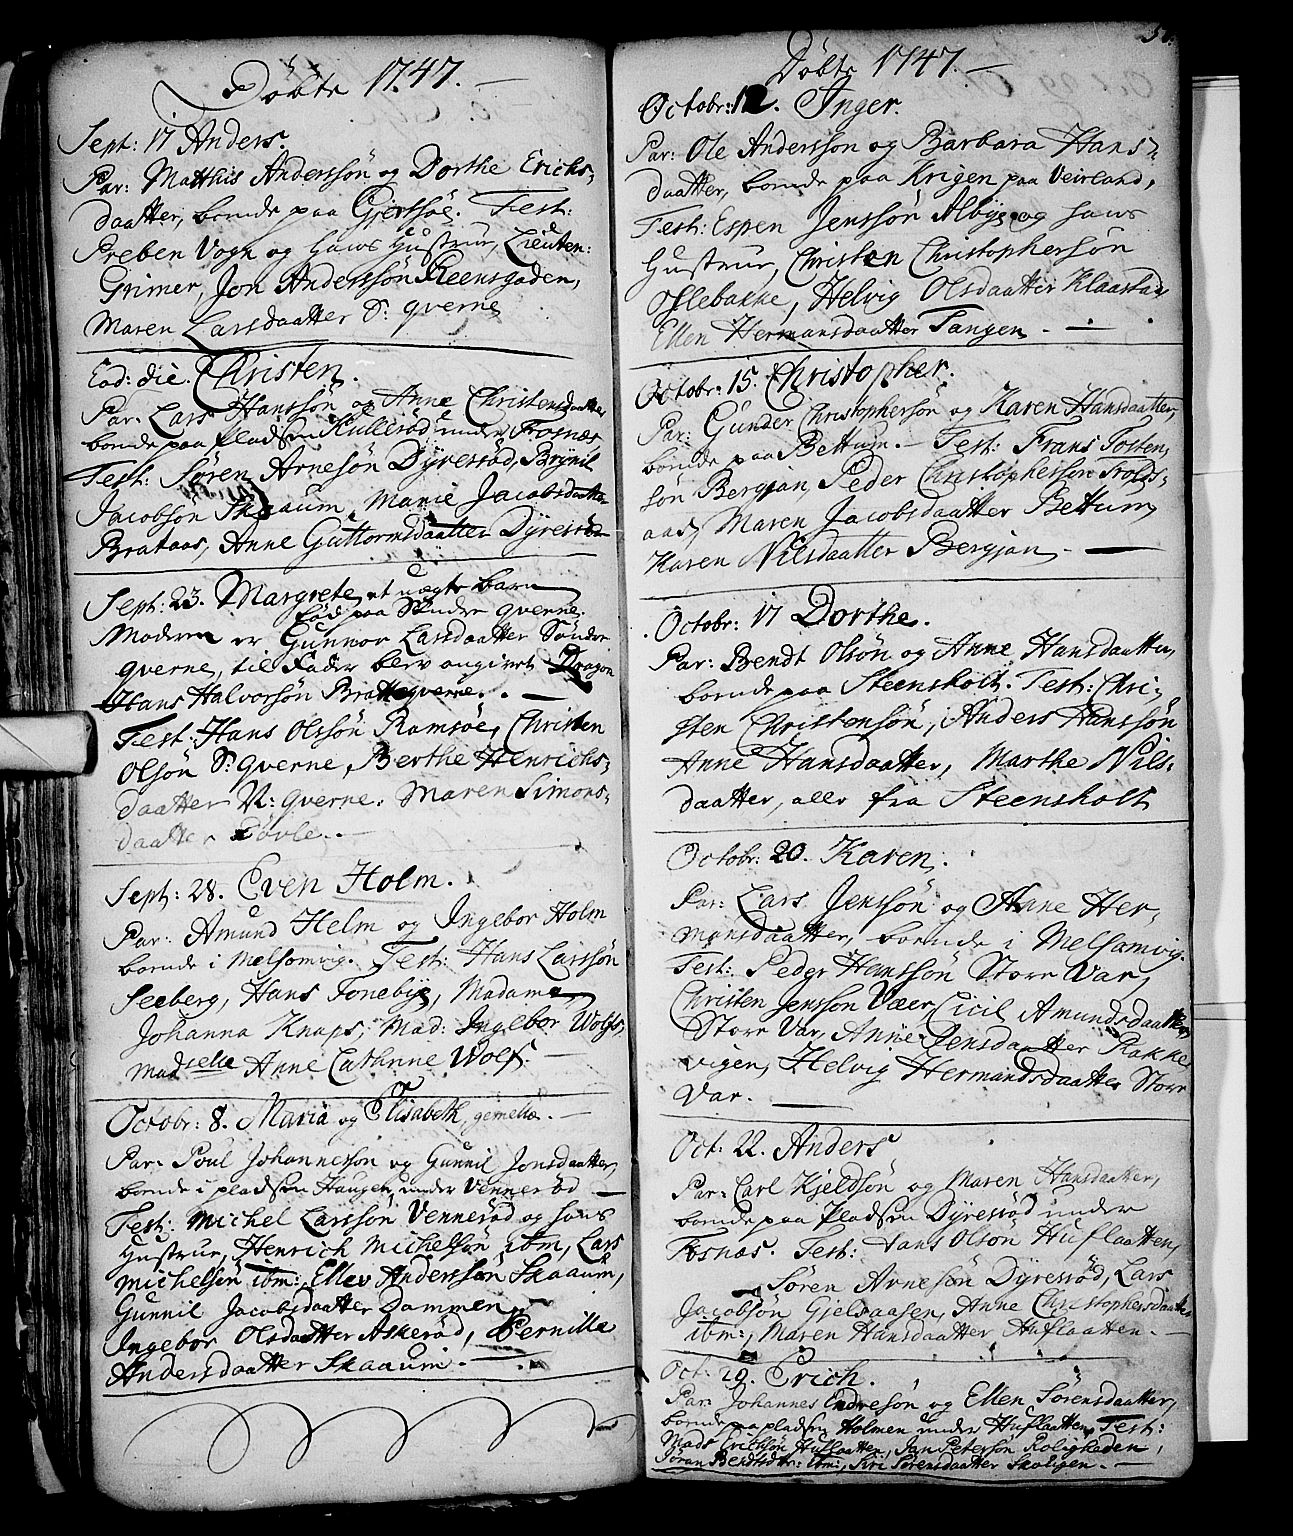 Döbte 1747.
Sept: 17 Anders.
Par: Matthis Anderssön og Dorthe Erichs-
daatter, boende paa Gjertsöe. Test:
Preben Vogn og hans Hustrue, Lieuten:
Grimer, Jon Anderssön Steensgaden,
Maren Larsdaatter S: qverne
Eod: die. Christen.
Par: Lars Hanssön og Anne Christensdaatter
boende paa pladsen Kullerød under Fosnæs
Test: Sören Arnesön Dÿresröd, Brÿnil
Jacobsön Skaaum, Marie Jacobsdaatter
Brataas, Anne Guttormsdaatter Dÿresröd
Sept: 23. Margrete, et uægte barn
föd paa Söndre qverne.
Moderen er Gunnor Larsdaatter Söndre
qverne, til Fader blev angivet Dragon
Hans Halvorsön Bratteqverne.
Test: Hans Olssön Ramsöe, Christen
Olsön S: qverne, Berthe Henrichs-
daatter N: qverne. Maren Simons-
daatter Bövle.
Sept: 28. Even Holm.
Par: Amund Helm og Ingebor Holm
boende i Melsomvig. Test: Hans Larssön
Seeberg, Hans Tonebÿe, Madame
Johanna Knaps, Mad: Ingebor Wolfs,
Madselle Anne Cathrine Wolf.
Octobr: 8. Maria og Elisabeth, gemellæ.
Par: Poul Johannessön og Gunnil Jonsdaatter,
boende i pladsen Haugen under Venneröd
Test: Michel Larssön Venneröd og hans
Hustrue, Henrich Michelsön ibm, Lars
Michelsön ibm: Ellev Anderssön Skaaum,
Gunnil Jacobsdaatter Dammen,
Ingebor Olsdaatter Askeröd, Pernille
Andersdaatter Skaaum.
Döbte 1747.
Octobr: 12. Inger.
Par: Ole Anderssön og Barbara Hans-
daatter, boende paa Krigen paa Veierland,
Test: Espen Jenssön Albÿe og hans
Hustrue, Christen Christophersön
Oslebakke, Helvig Olsdaatter Klaastad
Ellen Hermansdaatter Tangen.
Octobr: 15. Christopher.
Par: Gunder Christophersön og Karen Hansdaatter,
boende paa Bettum. Test: Frans Tosten-
sön Bergjan, Peder Christophersön Trolds-
aas, Maren Jacobsdaatter Bettum,
Karen Nilsdaatter Bergjan.
Octobr: 17 Dorthe.
Par: Bendt Olsön og Anne Hansdaatter,
boende paa Steensholt. Test: Chri-
sten Christensön, Anders Hanssön
Anne Hansdaatter, Marthe Nils-
daatter, alle fra Steensholt
Octobr: 20. Karen.
Par: Lars Jenssön og Anne Her-
mansdaatter, boende i Melsomvig.
Test: Peder Hanssön Store Var,
Christen Jensson Væer, Cicil Amundsdaatter
Store Var, Anne Jensdaatter Rakke
vigen, Helvig Hermandsdaatter Store
Var.
Oct: 22. Anders
Par: Carl Kjeldsön og Maren Hansdaatter,
boende paa Pladsen Dÿresröd under
Fosnæs. Test: Hans Olsön Huflaatten,
Sören Arnesön Dÿresröd, Lars
Jacobsön Gjelsaasen, Anne Christophersdaatter
ibm:, Maren Hansdaatter Huflaatten.
Oct: 29. Erich.
Par: Johannes Endresön og Ellen Sörensdaatter,
boende paa pladsen Holmen under Huflaatten, Test:
Mads Erichsön Huflaatten, Jan Petersön Roligheden,
Jöran Bendtsdtr: ibm:, Siri Sörensdaatter Skoligen.